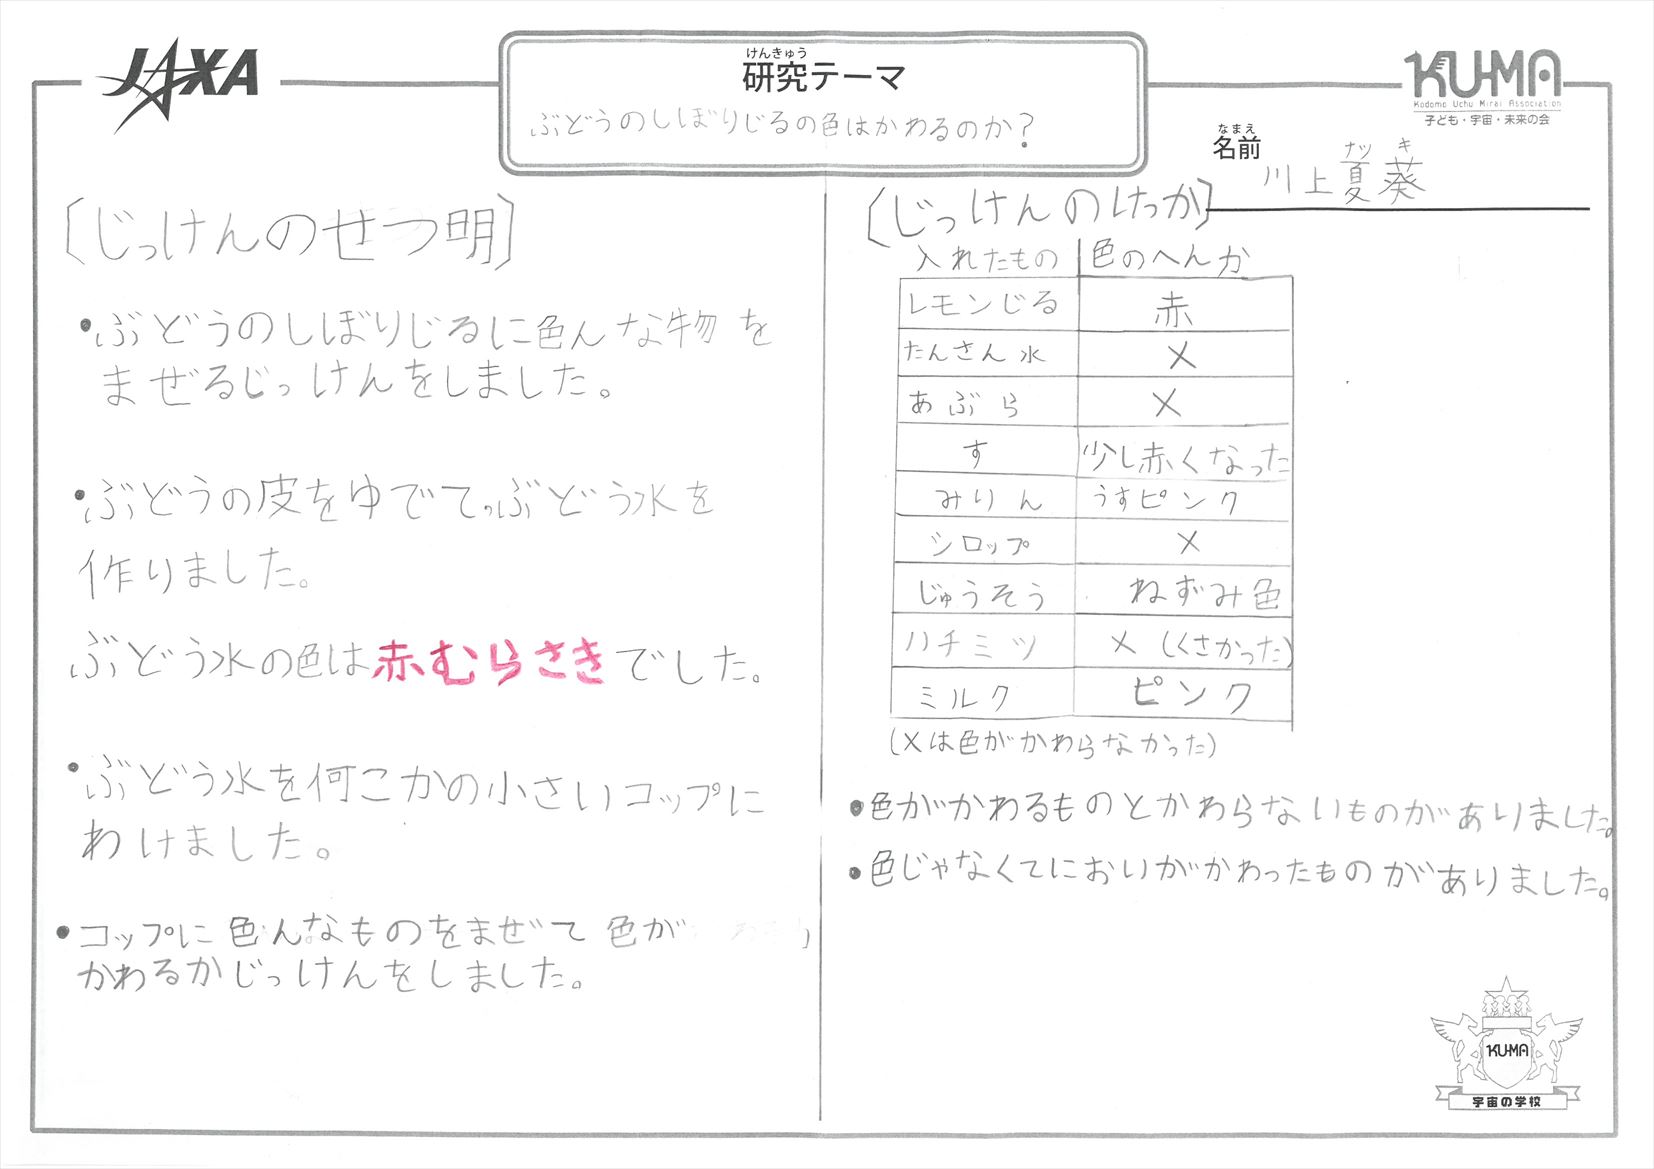 JAXA
けんきゅう
研究テーマ
ぶどうのしぼりじるの色はかわるのか?
KU-MA
Kodomo Uchu Mirai Association
子ども・宇宙・未来の会
なまえ
名前
ナツ キ
川上夏葵
[じっけんのせつ明]
•ぶどうのしぼりじるに色んな物を
まぜるじっけんをしました。
•ぶどうの皮をゆでて。ぶどう水を
作りました。
ぶどう水の色は赤むらさきでした。
•ぶどう水を何こかの小さいコップに
わけました。
•コップに色んなものをまぜて 色が
かわるかじっけんをしました。
[じっけんのけっか]
入れたもの 色のへんか
レモンじる 赤
たんさん水 ×
あぶら ×
す 少し赤くなった
みりん うすピンク
シロップ ×
じゅうそう ねずみ色
ハチミツ ×(くさかった)
ミルク ピンク
(×は色がかわらなかった)
•色がかわるものとかわらないものがありました。
•色じゃなくてにおいがかわったものがありました。
KU-MA
宇宙の学校